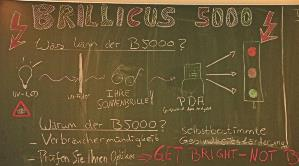 BRILLICUS 5000
Was kann der B5000?
UV-LED
IHRE
SONNENBRILLE!
PDA
Warum der B5000?
- Verbrauchermündigkeit
- Prüfen Sie Ihren Optiker
Selbstbestimmte
Gesundheitsförderung
⇒ GET BRIGHT - NOT